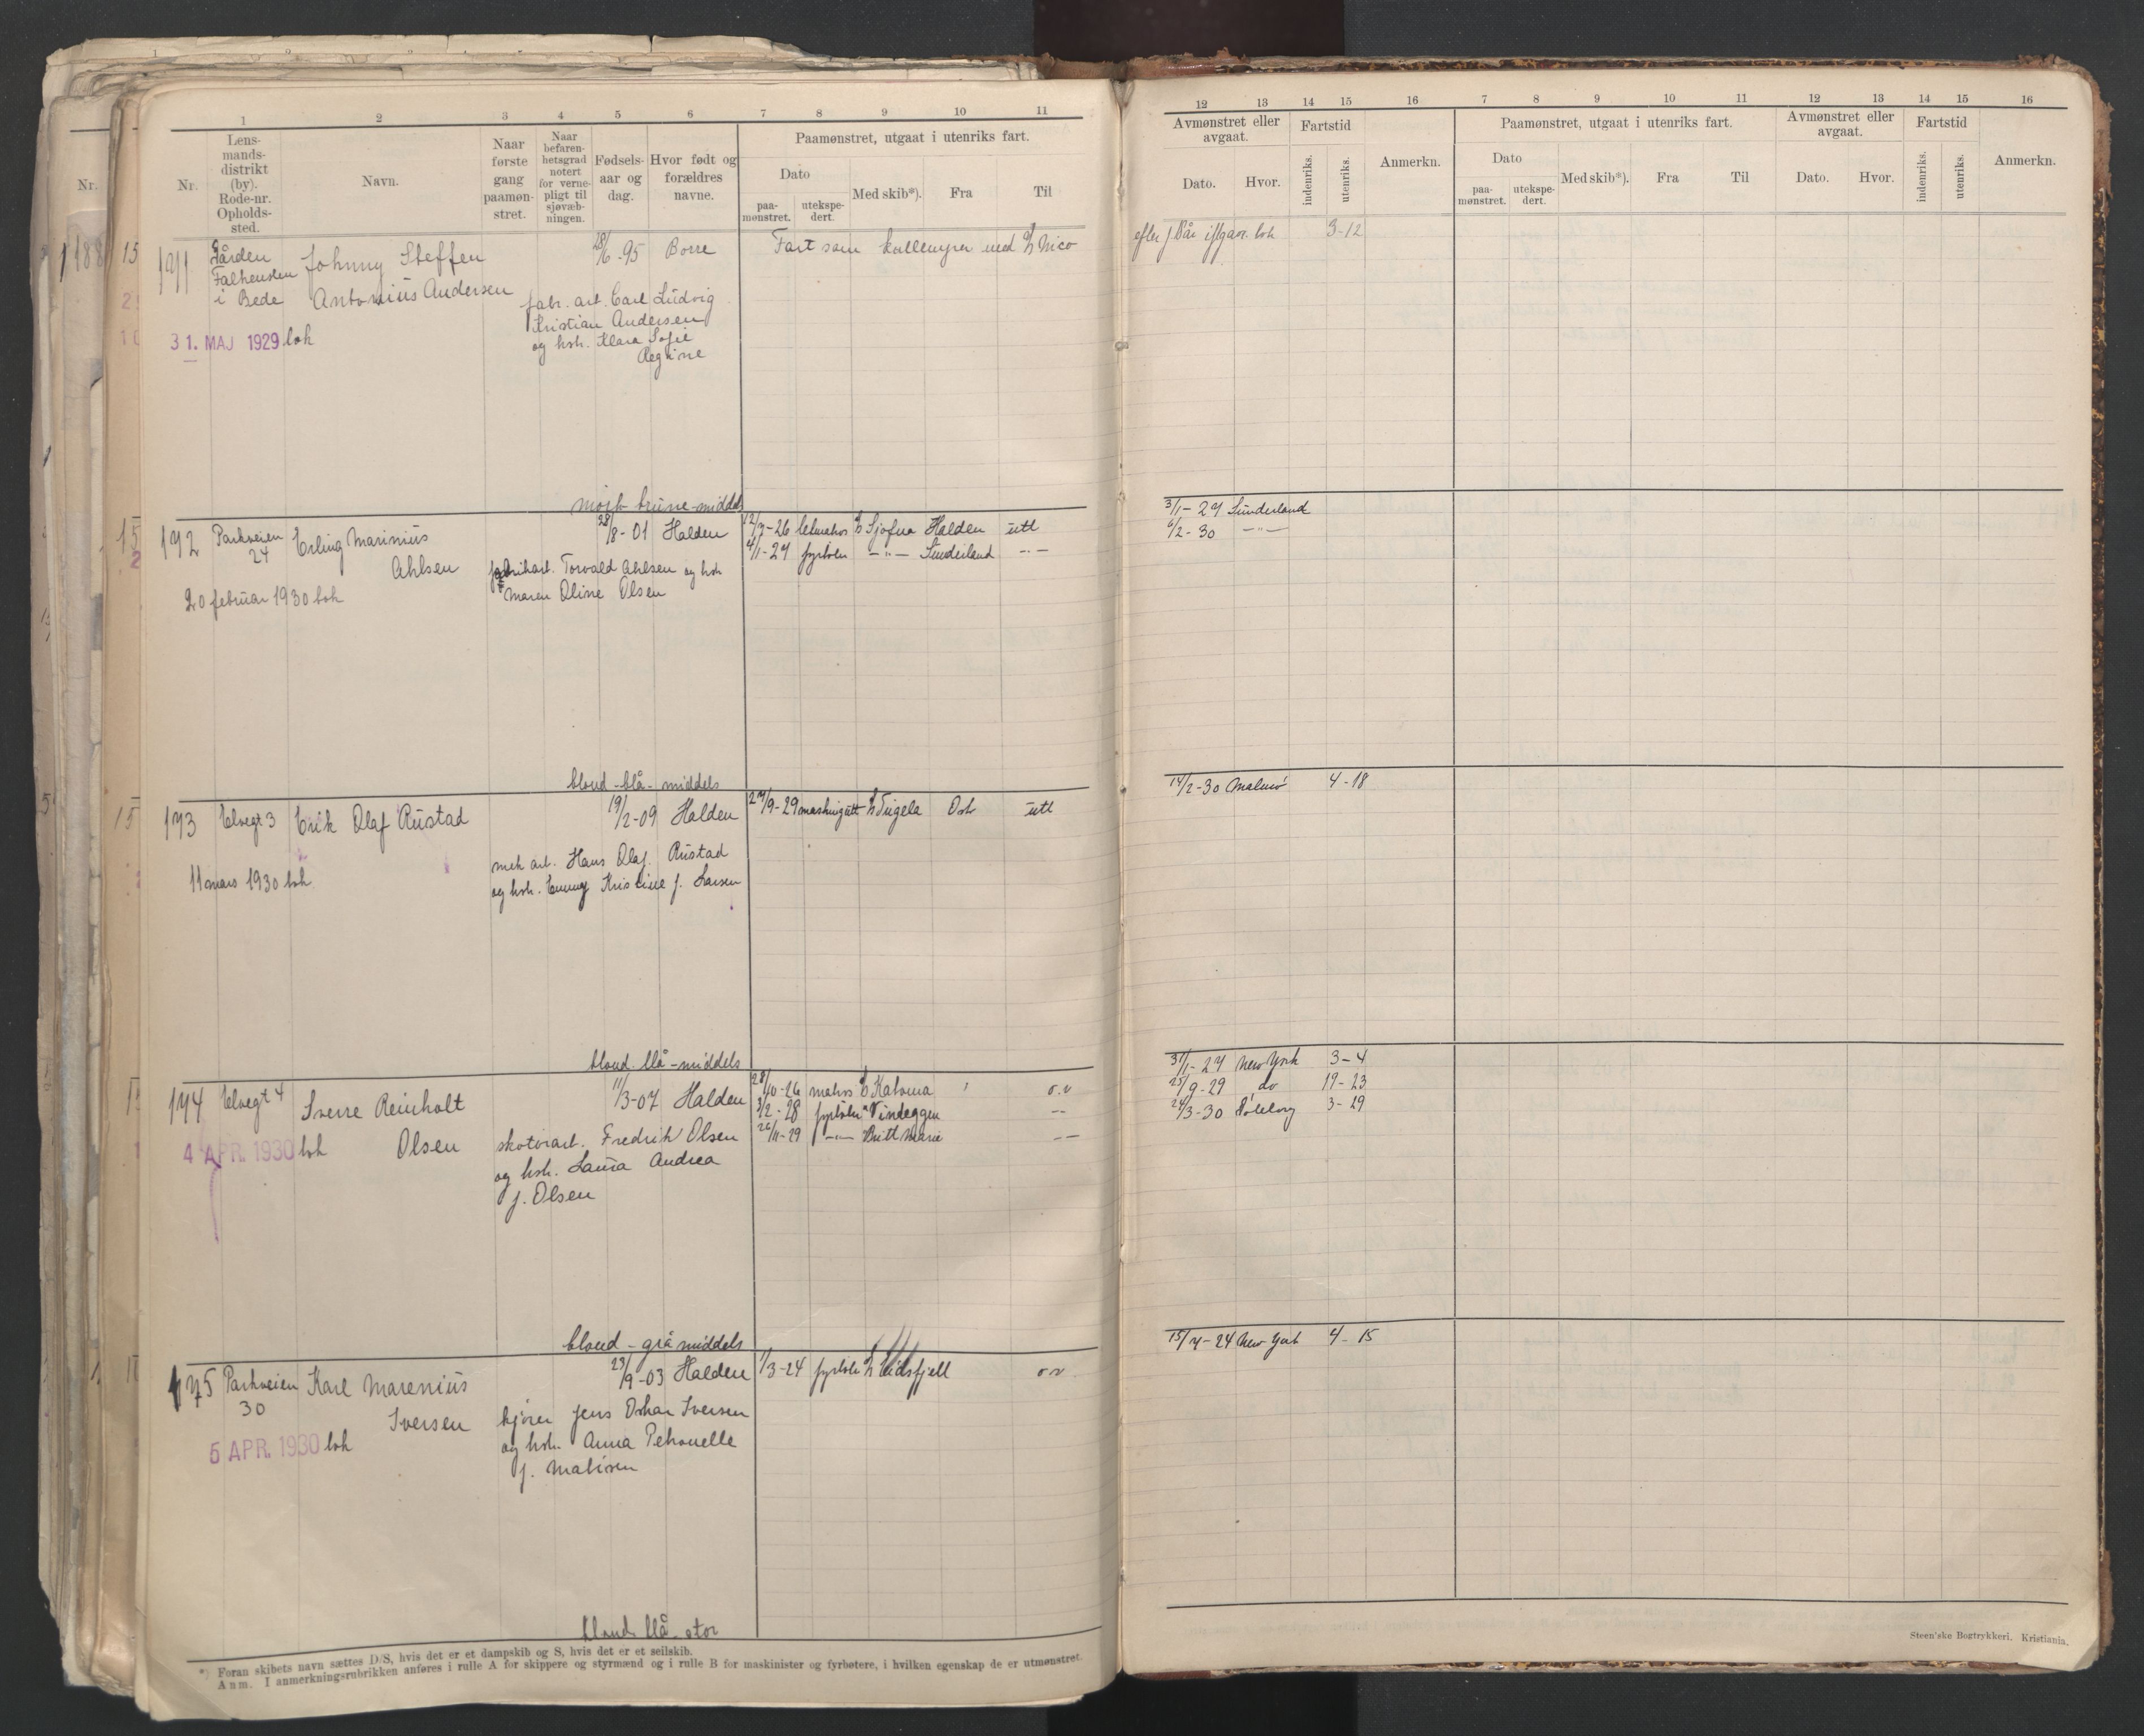 1 2 3 4 5 6 7 8 9 10 11
Nr.
Nr.
Lens-
mands-
distrikt
(by).
Rode-nr.
Opholds-
sted.
Navn.
Naar
første
gang
paamøn-
stret.
Naar
befaren-
hetsgrad
notert
for verne-
pligt til
sjøvæb-
ningen.
Fødsels-
aar og
dag.
Hvor født og
forældres
navne.
Paamønstret, utgaat i utenriks fart.
Dato
paa-
mønstret.
utekspe-
dert.
Med skib*).
Fra
Til
191 Gården Johnny Steffen 28/6-95 Borre Fart som med D/S Nico
i Bede Antonius Andersen
fabr. arb. Carl Ludvig
Kristian Andersen
og hstr. Klara Sofie
Regine
31. MAJ 1929
brune-middels
192 Parkveien Erling Marinius 28/8-01 Halden 12/7-26 D/S Sjofna Halden utl
24 Ahlsen 4/1-27 fyrbøter -"- Sunderland -"-
Torvald Ahlsen og hstr
Maren Oline Olsen
20 februar 1930
blond-blå-middels
193 Elvegt 3 Erik Olaf Rustad 19/2-09 Halden 27/9-29 maskingutt D/S Tugela Oslo utl
mek arb. Hans Olaf Rustad
og hstr. Emmy Kristine f. Larsen
11 mars 1930
blond blå-middels
194 Elvegt 4 Sverre Reinholt 11/3-07 Halden 28/10-26 D/S o.v
Olsen 3/2-28 fyrbøter Vindeggen
26/11-29 -"- Britt Marie
4 APR. 1930
skotöiarb. Fredrik Olsen
og hstr. Laura Andrea
f. Olsen
blond-grå middels
195 Parkveien Karl Marenius 23/9-03 Halden 1/3-24 fyrbøter D/S Eidsfjell o.v
30 Iversen
kjører Jens Oskar Iversen
og hstr. Anna Petronelle
f.
5 APR. 1930
blond blå stor
*) Foran skibets navn sættes D/S, hvis det er et dampskib og S, hvis det er et seilskib.
Anm. I anmerkningsrubrikken anføres i rulle A for skippere og styrmænd og i rulle B for maskinister og fyrbøtere, i hvilken egenskap de er utmønstret.
12 13 14 15 16 7 8 9 10 11 12 13 14 15 16
Avmønstret eller
avgaat.
Dato.
Hvor.
Fartstid
indenriks.
utenriks.
Anmerkn.
Paamønstret, utgaat i utenriks fart.
Dato
paa-
mønstret.
utekspe-
dert.
Med skib*).
Fra
Til
Avmønstret eller
avgaat.
Dato.
Hvor.
Fartstid
indenriks.
utenriks.
Anmerkn.
3-12
3/1-27 Sunderland
6/2-30 -"-
14/2-30 Malmö 4-18
31/1-27 New York 3-4
25/9-29 do 19-23
24/3-30 Göteborg 3-29
15/7-24 New York 4-15
Steen'ske Bogtrykkeri, Kristiania.